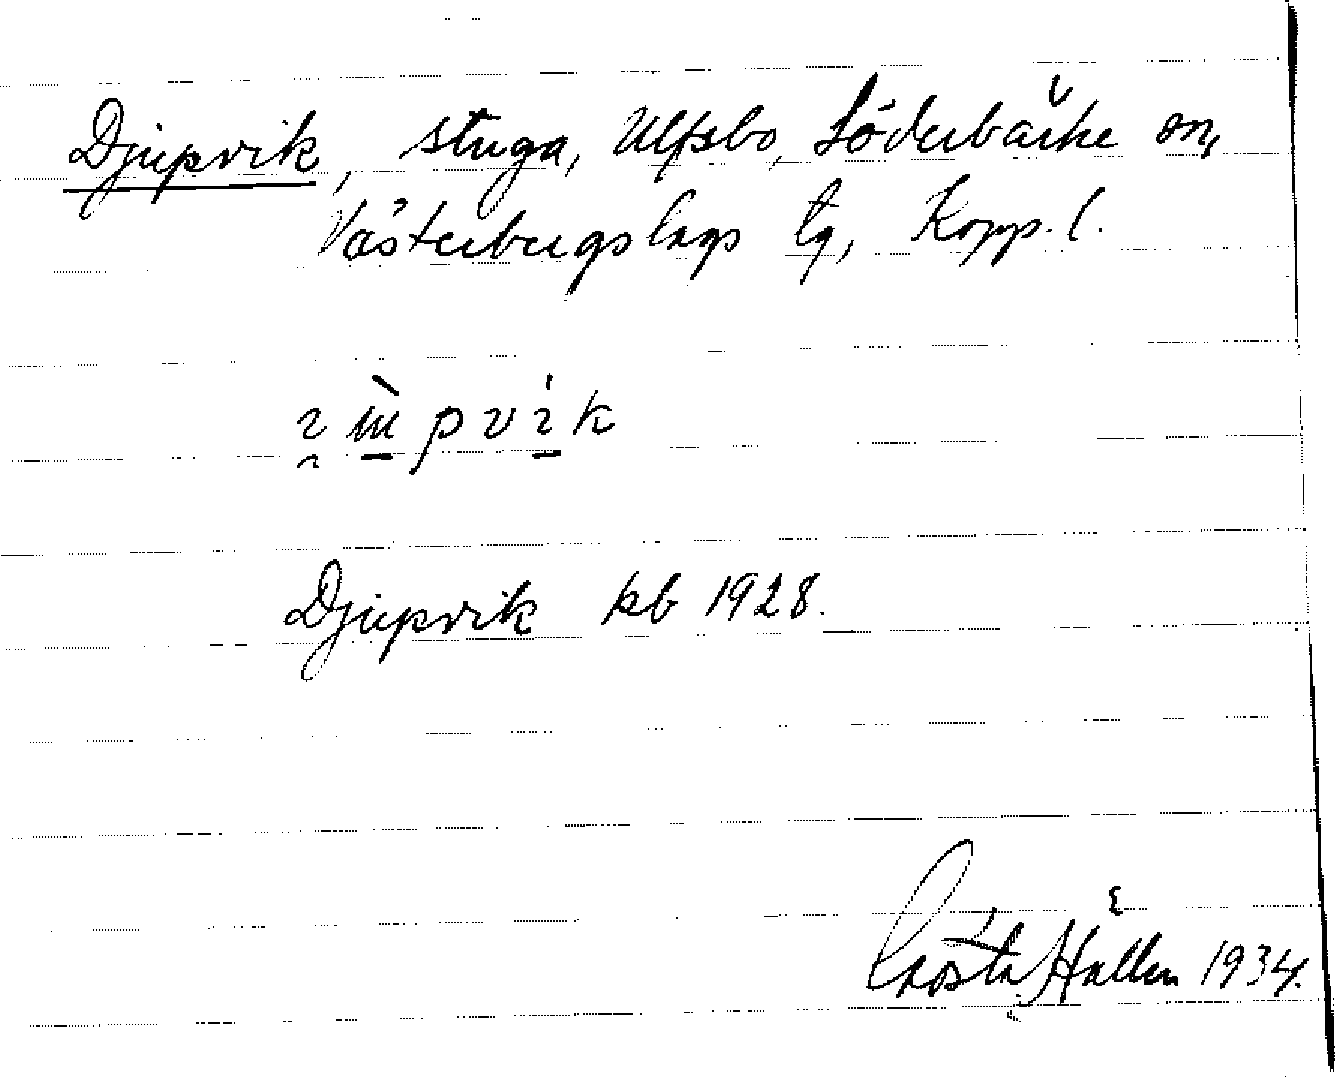 Djupvik, stuga, Ulfsbo, Söderbärke sn,
Västerbergslags tg, Kopp. l.
Djupvik kb 1928.
Gösta Hallén 1934.